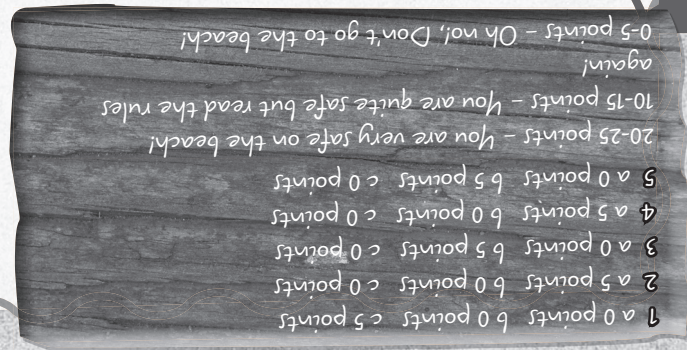 1 a 0 points b 0 points c 5 points
2 a 5 points b 0 points c 0 points
3 a 0 points b 5 points c 0 points
4 a 5 points b 0 points c 0 points
5 a 0 points b 5 points c 0 points
20-25 points – You are very safe on the beach!
10-15 points – You are quite safe but read the rules
again!
0-5 points – Oh no!, Don't go to the beach!